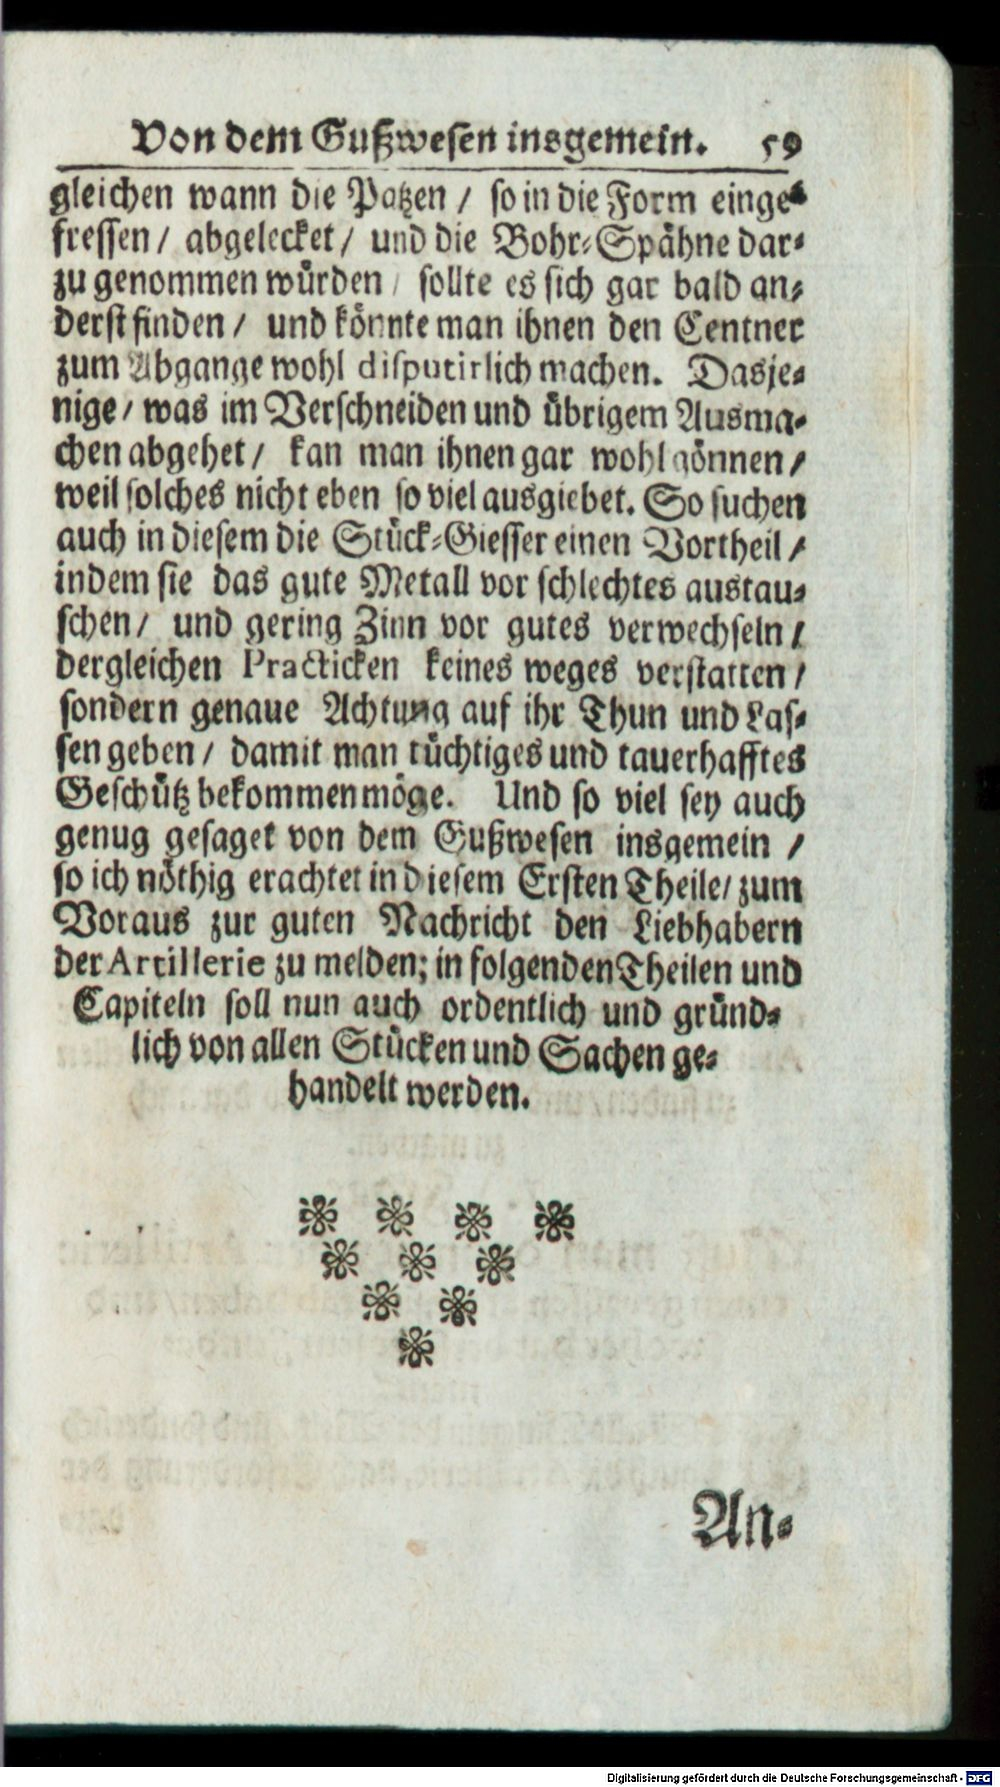 Von dem Gußwesen insgemein. 59
gleichen wann die Patzen / so in die Form einge-
fressen / abgelecket / und die Bohr-Spähne dar-
zu genommen würden / sollte es sich gar bald an-
derst finden / und könnte man ihnen den Centner
zum Abgange wohl disputirlich machen. Dasje-
nige / was im Verschneiden und übrigem Ausma-
chen abgehet / kan man ihnen gar wohl gönnen /
weil solches nicht eben so viel ausgiebet. So suchen
auch in diesem die Stück-Giesser einen Vortheil /
indem sie das gute Metall vor schlechtes austau-
schen / und gering Zinn vor gutes verwechseln /
dergleichen Practicken keines weges verstatten /
sondern genaue Achtung auf ihr Thun und Las-
sen geben / damit man tüchtiges und tauerhafftes
Geschütz bekommen möge. Und so viel sey auch
genug gesaget von dem Gußwesen insgemein /
so ich nöthig erachtet in diesem Ersten Theile / zum
Voraus zur guten Nachricht den Liebhabern
der Artillerie zu melden; in folgenden Theilen und
Capiteln soll nun auch ordentlich und gründ-
lich von allen Stücken und Sachen ge-
handelt werden.
An-
Digitalisierung gefördert durch die Deutsche Forschungsgemeinschaft - DFG